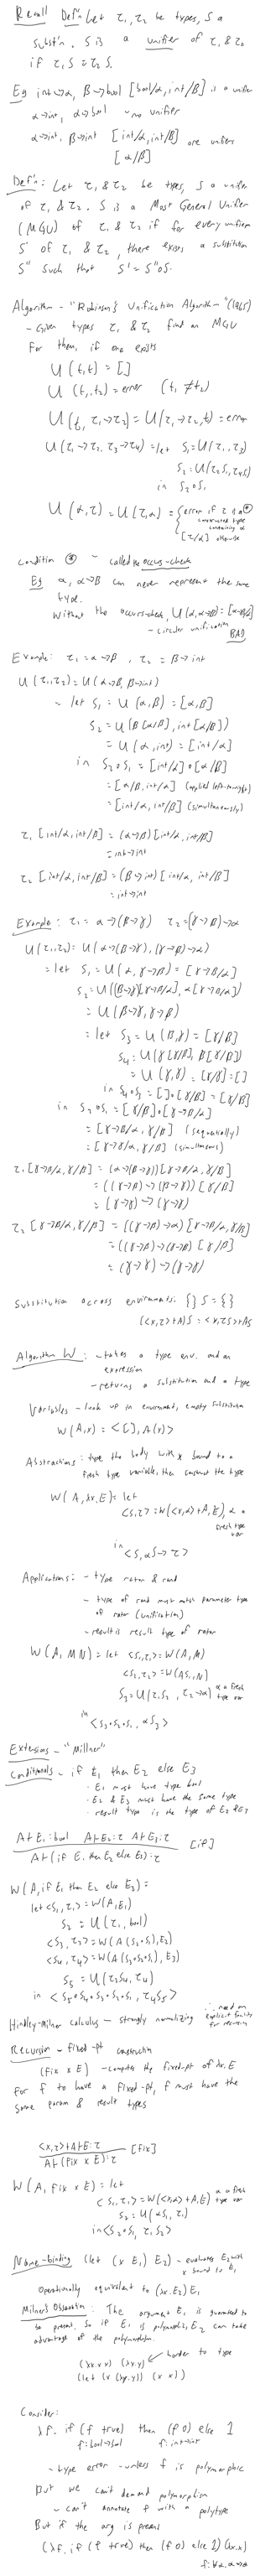 Recall Def'n: Let τ₁, τ₂ be types, S a
subst'n. S is a unifier of τ₁ & τ₂
if τ₁S = τ₂S.
Eg int→α, β→bool [bool/α, int/β] is a unifier
α→int, α→bool ~ no unifier
α→int, β→int [int/α, int/β] are unifiers
[α/β]
Def'n: Let τ₁ & τ₂ be types, S a unifier
of τ₁ & τ₂. S is a Most General Unifier
(MGU) of τ₁ & τ₂ if for every unifier
S' of τ₁ & τ₂, there exists a substitution
S'' such that S' = S''∘S.
Algorithm - "Robinson's Unification Algorithm" (1965)
- Given types τ₁ & τ₂ find an MGU
for them, if one exists
U(t,t) = []
U(t₁,t₂) = error (t₁ ≠ t₂)
U(t, τ₁→τ₂) = U(τ₁→τ₂, t) = error
U(τ₁→τ₂, τ₃→τ₄) = let S₁ = U(τ₁, τ₃)
S₂ = U(τ₂S₁, τ₄S₁)
in S₂∘S₁
U(α,τ) = U(τ,α) = { error if τ is a ⊛
constructed type
containing α
[τ/α] otherwise
Condition ⊛ ~ called the occurs-check
Eg α, α→β can never represent the same
type.
Without the occurs-check, U(α, α→β) = [α→β/α]
- circular unification BAD
Example: τ₁ = α→β, τ₂ = β→int
U(τ₁,τ₂) = U(α→β, β→int)
= let S₁ = U(α,β) = [α/β]
S₂ = U(β[α/β], int[α/β])
= U(α, int) = [int/α]
in S₂∘S₁ = [int/α]∘[α/β]
= [α/β, int/α] (applied left-to-right)
= [int/α, int/β] (simultaneously)
τ₁[int/α, int/β] = (α→β)[int/α, int/β]
= int→int
τ₂[int/α, int/β] = (β→int)[int/α, int/β]
= int→int
Example: τ₁ = α→(β→γ) τ₂ = (γ→β)→α
U(τ₁,τ₂) = U(α→(β→γ), (γ→β)→α)
= let S₁ = U(α, γ→β) = [γ→β/α]
S₂ = U((β→γ)[γ→β/α], α[γ→β/α])
= U(β→γ, γ→β)
= let S₃ = U(β,γ) = [γ/β]
S₄ = U(γ[γ/β], β[γ/β])
= U(γ,γ) = [γ/γ] = []
in S₄∘S₃ = []∘[γ/β] = [γ/β]
in S₂∘S₁ = [γ/β]∘[γ→β/α]
= [γ→β/α, γ/β] (sequentially)
= [γ→γ/α, γ/β] (simultaneous)
τ₁[γ→β/α, γ/β] = (α→(β→γ))[γ→β/α, γ/β]
= ((γ→β)→(β→γ))[γ/β]
= (γ→γ)→(γ→γ)
τ₂[γ→β/α, γ/β] = ((γ→β)→α)[γ→β/α, γ/β]
= ((γ→β)→(γ→β))[γ/β]
= (γ→γ)→(γ→γ)
Substitution across environments: {}S = {}
(<x,τ>+A)S = <x,τS>+AS
Algorithm W: - takes a type env. and an
expression
- returns a substitution and a type
Variables - look up in environment, empty substitution
W(A,x) = <[], A(x)>
Abstractions: type the body with x bound to a
fresh type variable, then construct the type
W(A, λx.E) = let
<S,τ> = W(<x,α>+A, E), α a
fresh type
var
in
<S, αS→τ>
Applications: - type rator & rand
- type of rand must match parameter type
of rator (unification)
- result is result type of rator
W(A, MN) = let <S₁,τ₁> = W(A,M)
<S₂,τ₂> = W(AS₁,N)
S₃ = U(τ₁S₂, τ₂→α) α a fresh
type var
in
<S₃∘S₂∘S₁, αS₃>
Extensions - "Millner"
Conditionals - if E₁ then E2 else E3
· E1 must have type bool
· E2 & E3 must have the same type
· result type is the type of E2 & E3
A⊢E₁:bool A⊢E₂:τ A⊢E₃:τ
A⊢(if E₁ then E₂ else E₃):τ [if]
W(A, if E₁ then E₂ else E₃) =
let <S₁,τ₁> = W(A,E₁)
S₂ = U(τ₁, bool)
<S₃,τ₃> = W(A(S₂∘S₁),E₂)
<S₄,τ₄> = W(A(S₃∘S₂∘S₁),E₃)
S₅ = U(τ₃S₄, τ₄)
in <S₅∘S₄∘S₃∘S₂∘S₁, τ₄S₅>
Hindley-Milner calculus - strongly normalizing ∴ need an
explicit facility
for recursion
Recursion - fixed-pt construction
(fix x E) - computes the fixed-pt of λx.E
for f to have a fixed-pt, f must have the
same param & result types
<x,τ>+A⊢E:τ
A⊢(fix x E):τ [fix]
W(A, fix x E) = let
<S₁,τ₁> = W(<x,α>+A,E) α a fresh
type var
S₂ = U(αS₁, τ₁)
in <S₂∘S₁, τ₁S₂>
Name-binding (let (x E₁) E₂) - evaluates E₂ with
x bound to E₁
Operationally equivalent to (λx.E₂)E₁
Milner's Observation: The argument E₁ is guaranteed to
be present. So if E₁ is polymorphic, E₂ can take
advantage of the polymorphism.
(λx.x x) (λy.y) ← harder to type
(let (x (λy.y)) (x x))
Consider:
λf. if (f true) then (f 0) else 1
f:bool→bool f:int→int
- type error - unless f is polymorphic
But we can't demand polymorphism
- can't annotate f with a polytype
But if the arg is present
(λf. if (f true) then (f 0) else 1)(λx.x)
f:∀α.α→α